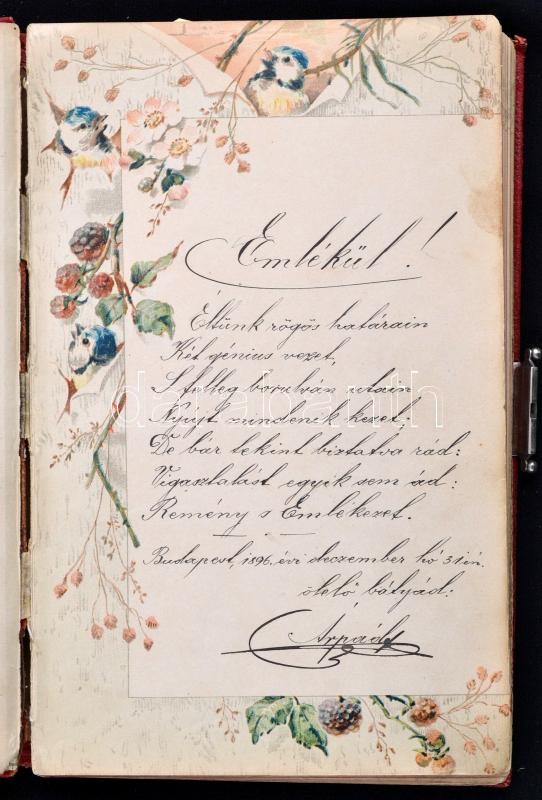 Emlékül!
Éltünk rögös határain
Két génius vezet,
S felleg borulván utain
Nyújt mindenik kezet.
De bár tekint biztatva rád:
Vigasztalást egyik sem ád:
Remény s Emlékezet.
Budapest, 1896. évi deczember hó 31én.
ölelő bátyád:
Árpád
darabanth